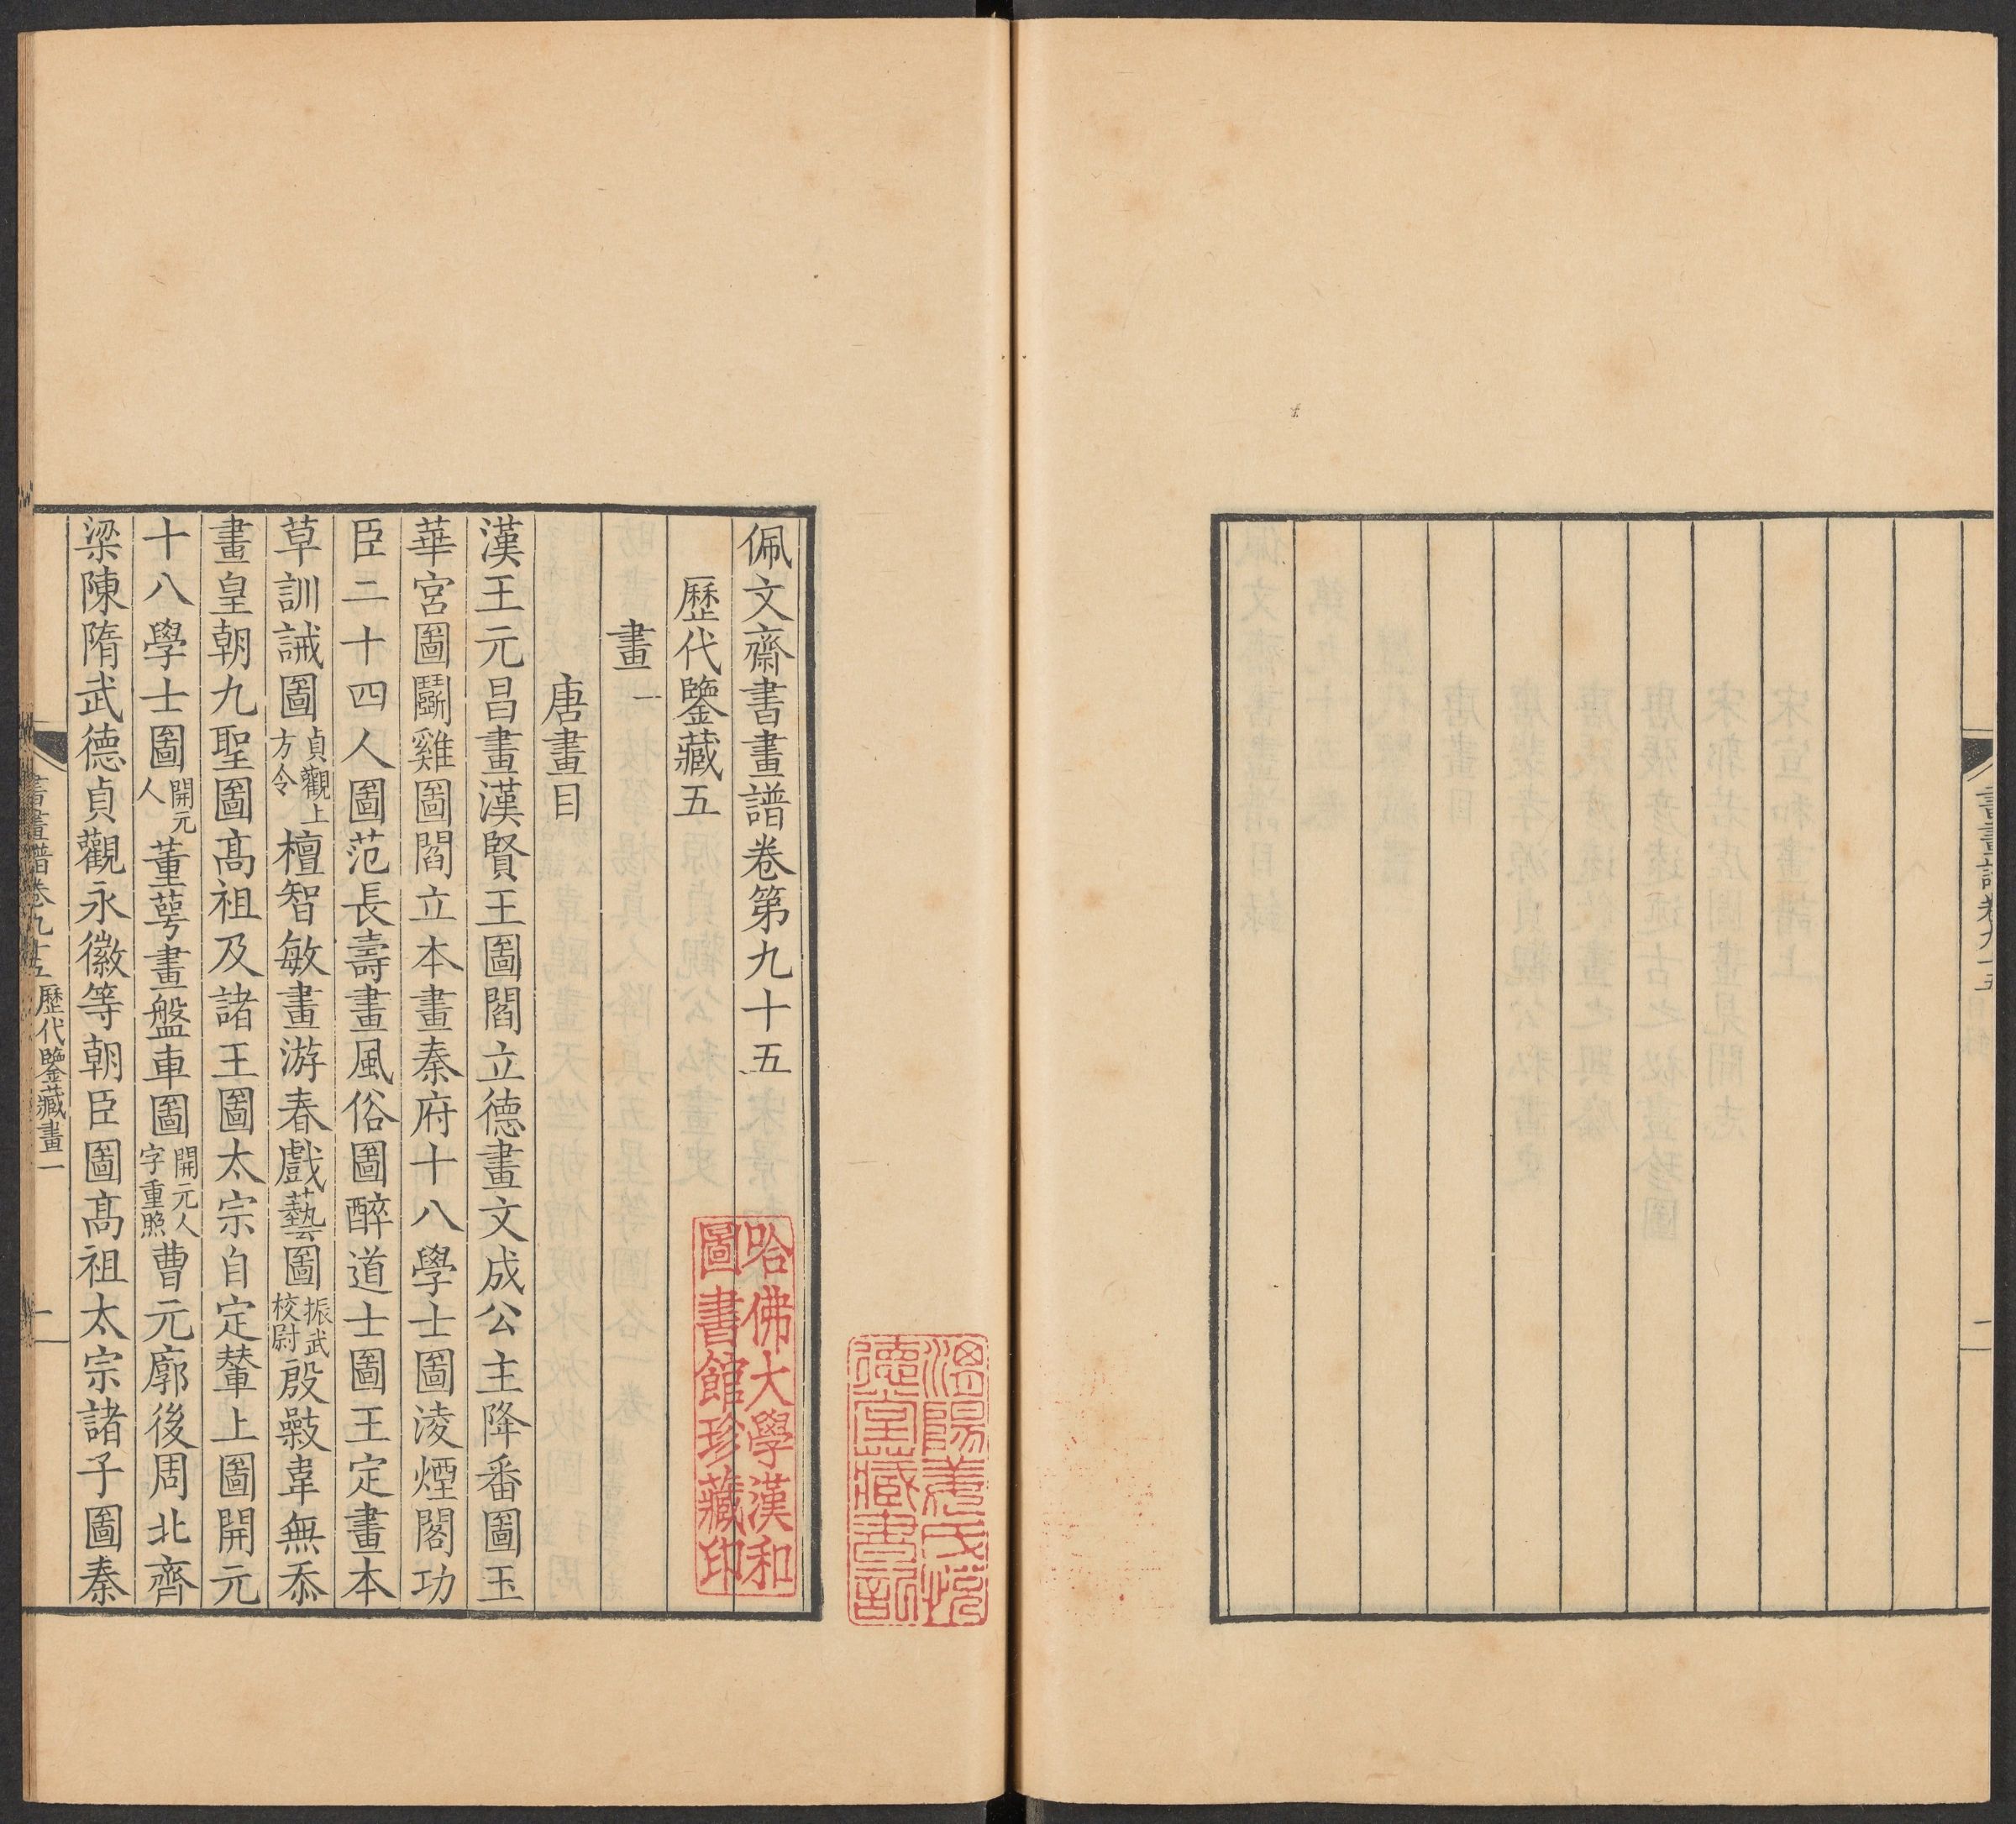 書畫譜卷九十五
一
佩文齋書畫譜卷第九十五
歷代鑒藏五
畫一
唐畫目
漢王元昌畫漢賢王圖閻立德畫文成公主降番圖玉
華宮圖鬭雞圖閻立本畫秦府十八學士圖淩煙閣功
臣二十四人圖范長壽畫風俗圖醉道士圖王定畫本
草訓誡圖貞觀上方令檀智敏畫游春戲藝圖振武校尉殷𢾗韋無忝
畫皇朝九聖圖高祖及諸王圖太宗自定輦上圖開元
十八學士圖開元人董萼畫盤車圖開元人字重照曹元廓後周北齊
梁陳隋武德貞觀永徽等朝臣圖高祖太宗諸子圖秦
書畫譜卷九十五 歷代鑒藏畫一
一
哈佛大學漢和
圖書館珍藏印
陽姜氏悅
德堂藏書記